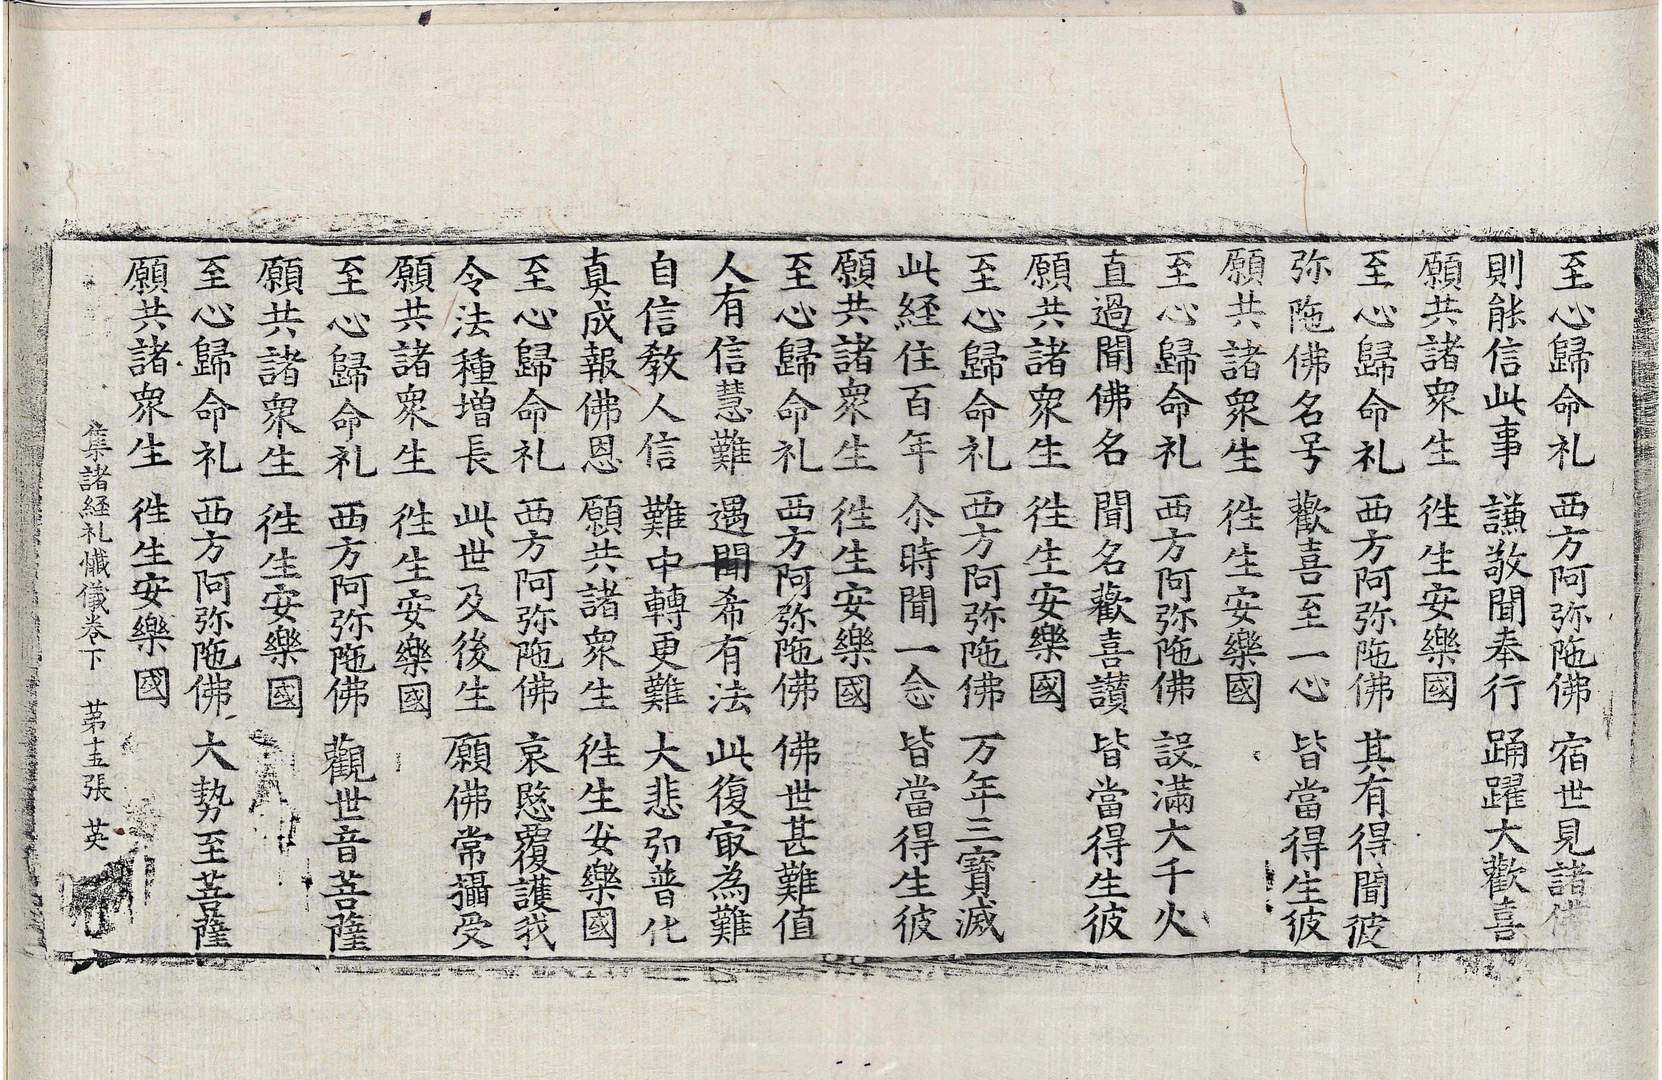 至心歸命礼 西方阿弥陁佛 宿世見諸佛
則能信此事 謙敬聞奉行 踊躍大歡喜
願共諸衆生 徃生安樂國
至心歸命礼 西方阿弥陁佛 其有得聞彼
弥陁佛名号 歡喜至一心 皆當得生彼
願共諸衆生 徃生安樂國
至心歸命礼 西方阿弥陁佛 設滿大千火
直過聞佛名 聞名歡喜讃 皆當得生彼
願共諸衆生 徃生安樂國
至心歸命礼 西方阿弥陁佛 万年三寳滅
此経住百年 尒時聞一念 皆當得生彼
願共諸衆生 徃生安樂國
至心歸命礼 西方阿弥陁佛 佛世甚難值
人有信慧難 遇聞希有法 此復㝡為難
自信教人信 難中轉更難 大悲弘普化
真成報佛恩 願共諸衆生 徃生安樂國
至心歸命礼 西方阿弥陁佛 哀愍覆護我
令法種增長 此世及後生 願佛常攝受
願共諸衆生 徃生安樂國
至心歸命礼 西方阿弥陁佛 觀世音菩薩
願共諸衆生 徃生安樂國
至心歸命礼 西方阿弥陁佛 大勢至菩薩
願共諸衆生 徃生安樂國
集諸経礼懺儀卷下 苐十五張 英